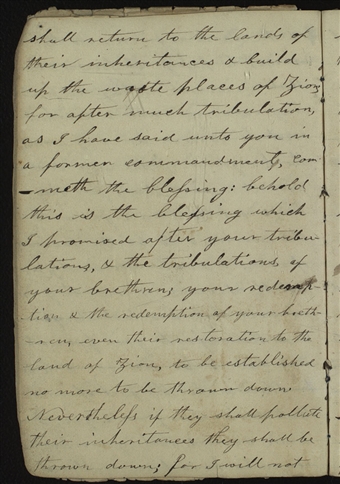 shall return to the lands of
their inheritances & build
up the waste places of Zion
for after much tribulation,
as I have said unto you in
a former commandment, com-
-meth the blessing: behold
this is the blessing which
I promised after your tribu-
lations, & the tribulations of
your brethren; your redemp-
tion & the redemption of your breth-
-ren, even their restoration to the
land of Zion, to be established
no more to be thrown down
Nevertheless if they shall pollute
their inheritances they shall be
thrown down; for I will not